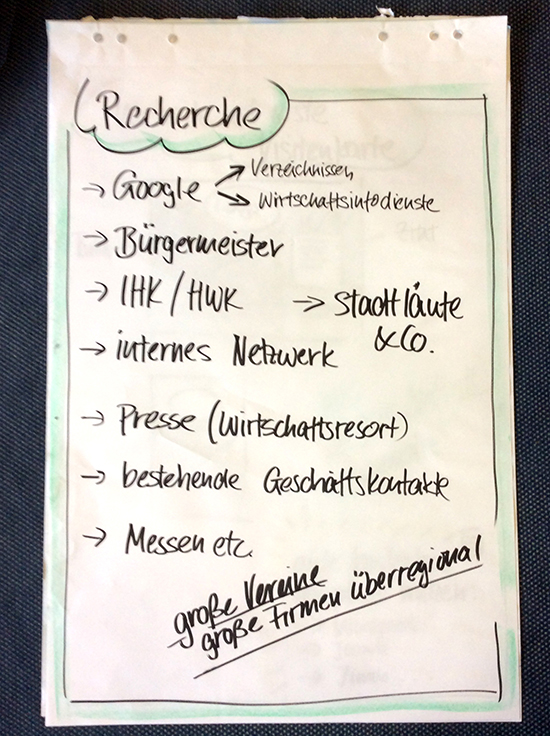 Recherche
→ Google → Verzeichnissen
→ Wirtschaftsinfodienste
→ Bürgermeister
→ IHK / HWK → Stadtläute
& Co.
→ internes Netzwerk
→ Presse (Wirtschaftsresort)
→ bestehende Geschäftskontakte
→ Messen etc.
große Vereine
große Firmen überregional